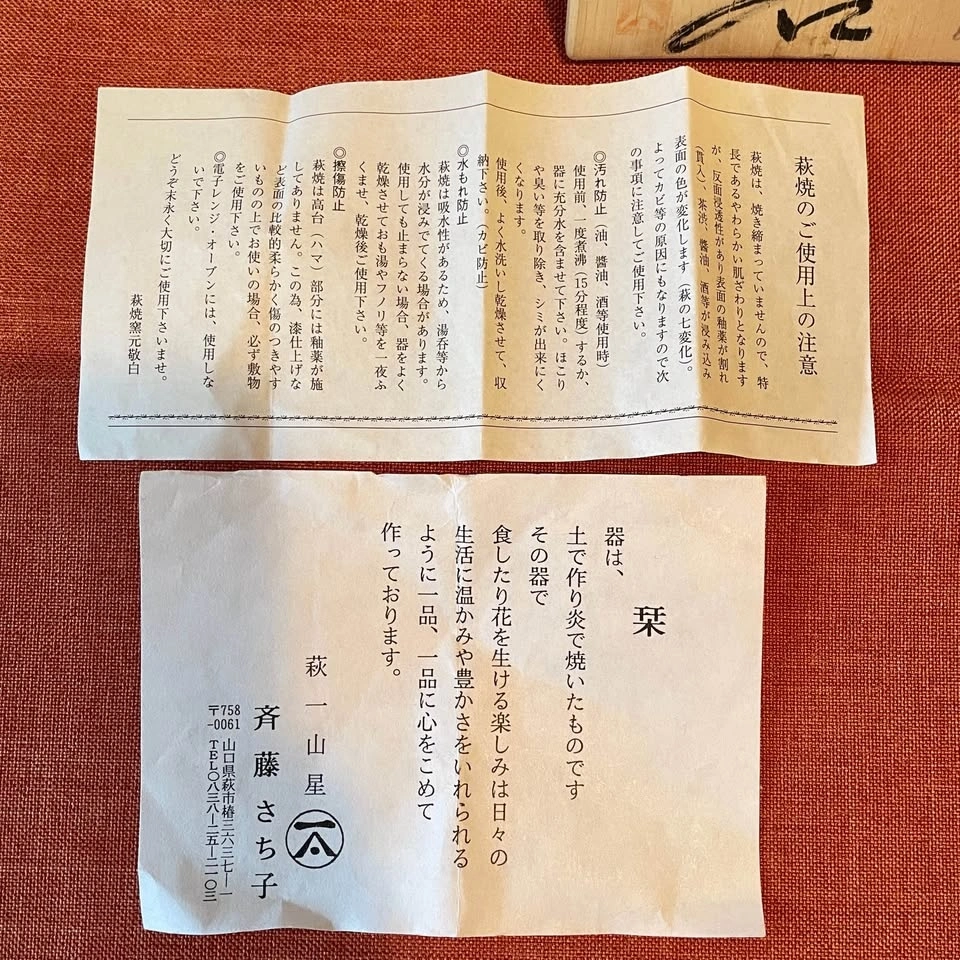 萩焼のご使用上の注意
萩焼は、焼き締まっていませんので、特
長であるやわらかい肌ざわりとなります
が、反面浸透性があり表面の釉薬が割れ
(貫入)、茶渋、醬油、酒等が浸み込み
表面の色が変化します(萩の七変化)。
よってカビ等の原因にもなりますので次
の事項に注意してご使用下さい。
◎汚れ防止(油、醬油、酒等使用時)
使用前、一度煮沸(15分程度)するか、
器に充分水を含ませて下さい。ほこり
や臭い等を取り除き、シミが出来にく
くなります。
使用後、よく水洗いし乾燥させて、収
納下さい。(カビ防止)
◎水もれ防止
萩焼は吸水性があるため、湯呑等から
水分が浸みでてくる場合があります。
使用しても止まらない場合、器をよく
乾燥させておも湯やフノリ等を一夜ふ
くませ、乾燥後ご使用下さい。
◎擦傷防止
萩焼は高台(ハマ)部分には釉薬が施
してありません。この為、漆仕上げな
ど表面の比較的柔らかく傷のつきやす
いものの上でお使いの場合、必ず敷物
をご使用下さい。
◎電子レンジ・オーブンには、使用しな
いで下さい。
どうぞ末永く大切にご使用下さいませ。
萩焼窯元敬白
栞
器は、
土で作り炎で焼いたものです
その器で
食したり花を生ける楽しみは日々の
生活に温かみや豊かさをいれられる
ように一品、一品に心をこめて
作っております。
萩一山星
斉藤さち子
〒758-0061 山口県萩市椿三六三七ー一
TEL〇八三八ー二五ー二一〇三